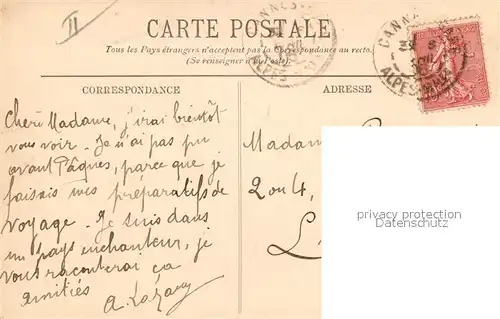 II
CARTE POSTALE
Tous les Pays étrangers n'acceptent pas la Correspondance au recto.
(Se renseigner à la Poste).
CANNES
ALPES
CANNES
ALPES-M
CORRESPONDANCE
ADRESSE
Chère Madame, j'irai bientôt
vous voir. Je n'ai pas pu
avant Pâques, parce que je
faisais mes préparatifs de
voyage. Je suis dans
un pays enchanteur, je
vous raconterai ça
amitiés
Madame
2 ou 4,
L
privacy protection
Datenschutz